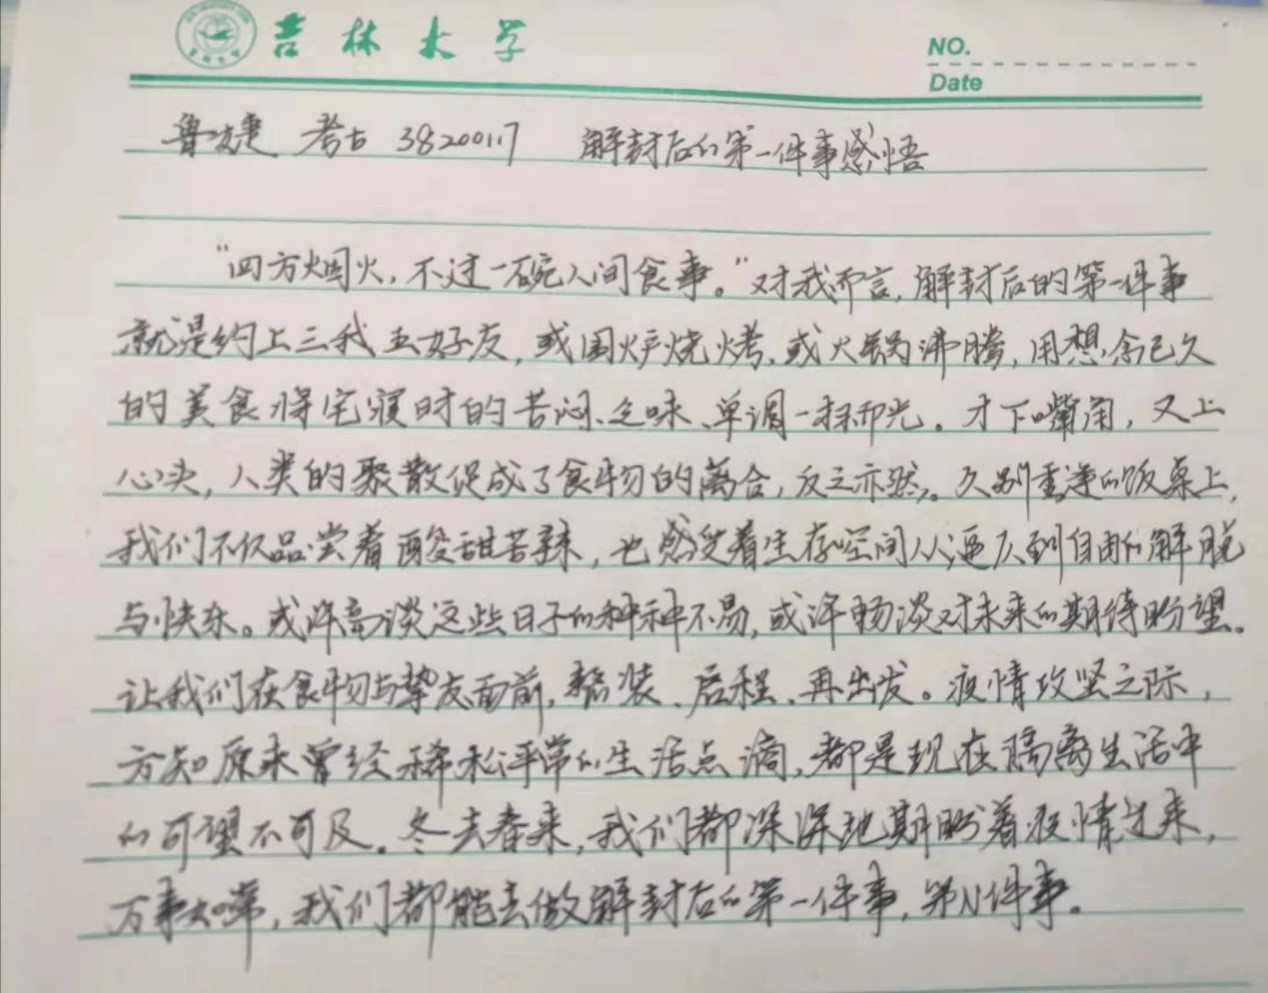 吉林大学
NO.
Date
鲁婕 考古 3820017 解封后的第一件事感悟
“四方烟火,不过一碗人间食事。”对我而言,解封后的第一件事
就是约上三我五好友,或围炉烧烤、或火锅沸腾,用想念已久
的美食将宅寝时的苦闷、乏味、单调一扫而光。才下嘴角,又上
心尖,人类的聚散促成了食物的离合,反之亦然。久别重逢的饭桌上,
我们不仅品尝着酸甜苦辣,也感受着生存空间从逼仄到自由的解脱
与快乐。或许高谈这些日子的种种不易,或许畅谈对未来的期待盼望。
让我们在食物与挚友面前,整装、启程、再出发。疫情攻坚之际,
方知原来曾经稀松平常的生活点滴,都是现在隔离生活中
的可望不可及。冬去春来,我们都深深地期盼着疫情过来,
万事大嘩,我们都能去做解封后的第一件事,第N件事。